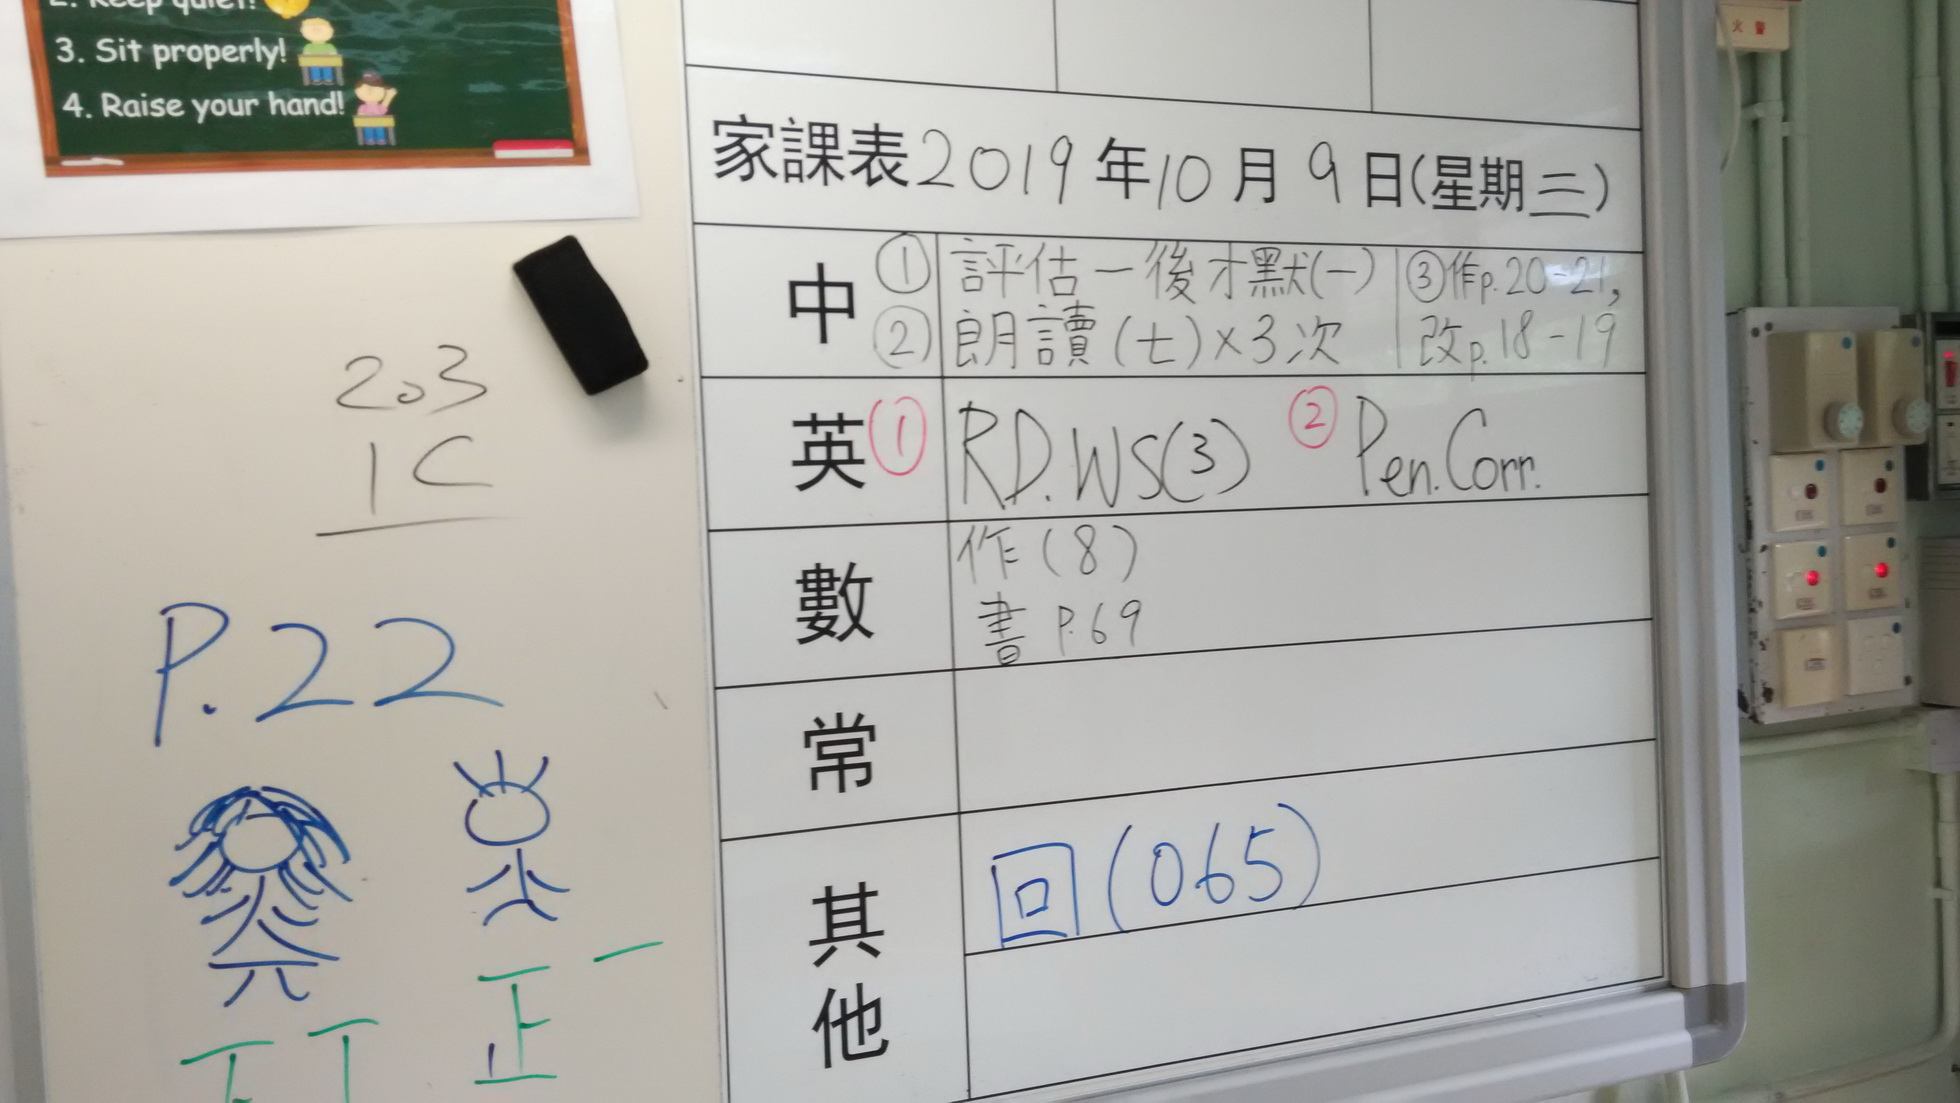 2. Keep quiet!
3. Sit properly!
4. Raise your hand!
火警
家課表2019年10月9日(星期三)
中 ① 評估一後才默(一) ③作p.20-21,
② 朗讀(七)×3次 改p.18-19
英 ① RD.WS(3) ② Pen.Corr.
數 作(8)
書 P.69
常
其他 回(065)
203
1C
P.22
正一